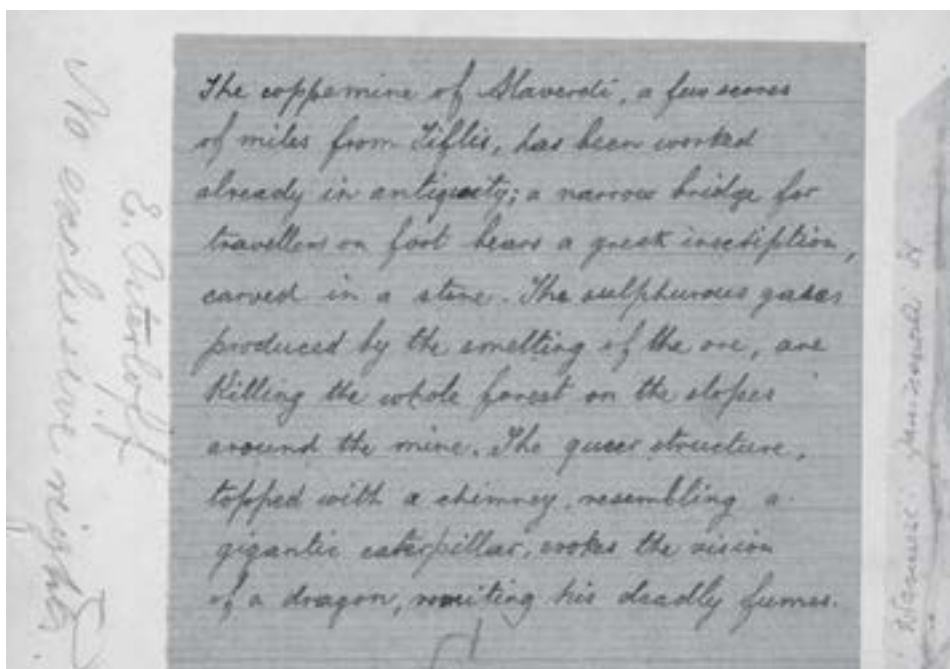 The coppemine of Alaverdi, a few scores
of miles from Tiflis, has been worked
already in antiquity; a narrow bridge for
travellers on foot bears a greek insciption,
carved in a stone. The sulphurous gases
produced by the smelting of the ore, are
Killing the whole forest on the slopes
around the mine. The queer structure,
topped with a chimney, resembling a
gigantic caterpillar, evokes the vision
of a dragon, vomiting his deadly fumes.
No exclusive rights
E.